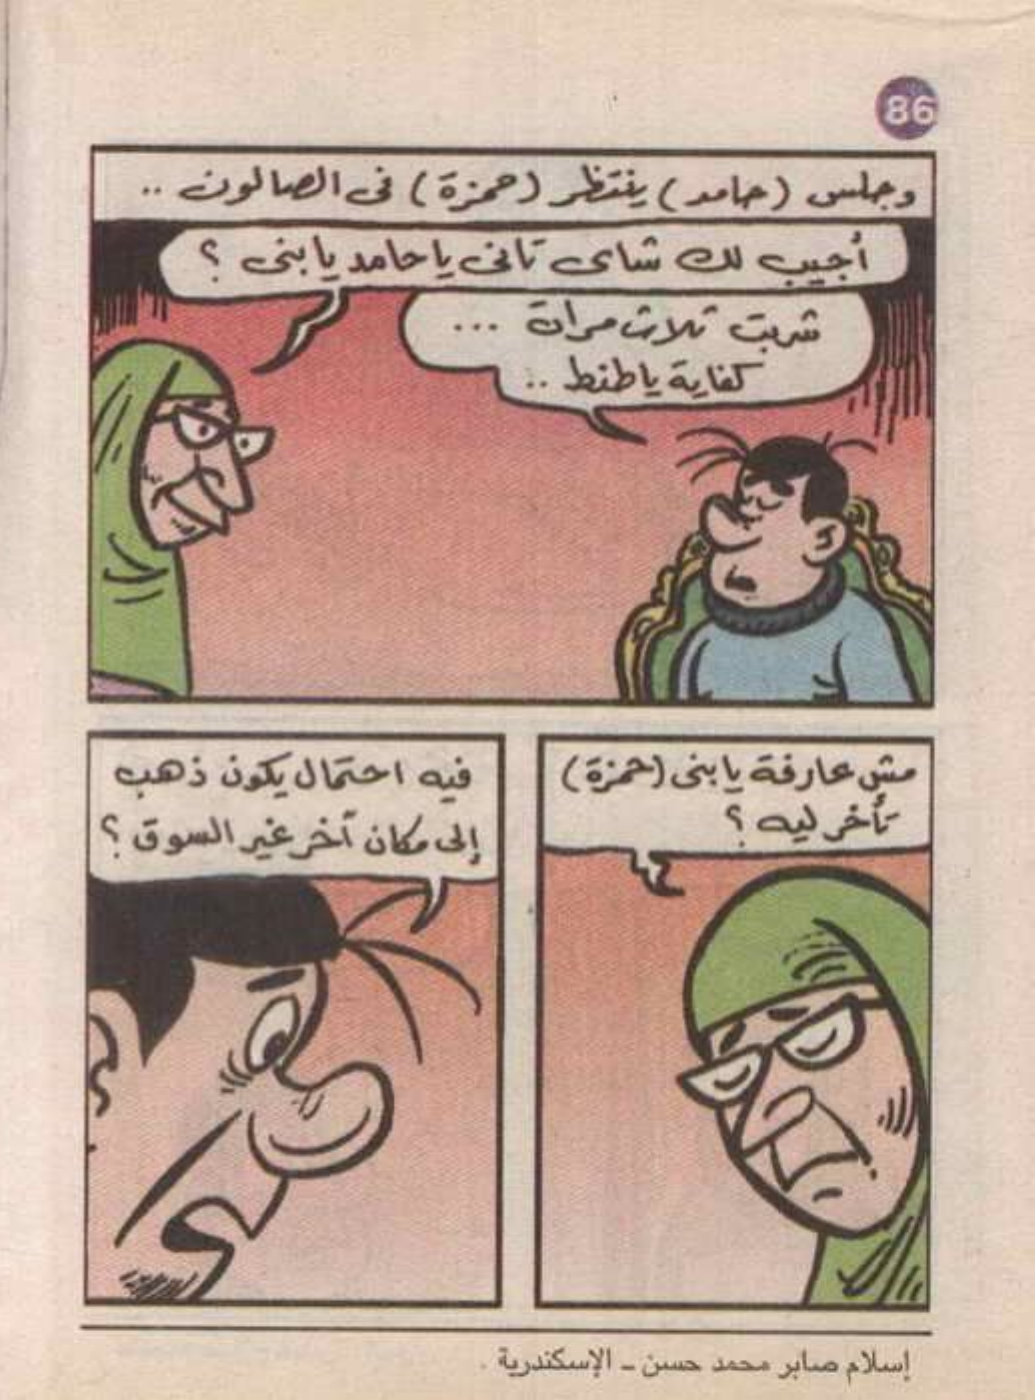 86
وجلس (حامد) ينتظر (حمزة) فى الصالون ..
أجيب لك شاى تانى يا حامد يا بنى ؟
شربت تلات مرات ...
كفاية يا طنط ..
مش عارفة يا بنى (حمزة)
تأخر ليه ؟
فيه احتمال يكون ذهب
إلى مكان آخر غير السوق ؟
إسلام صابر محمد حسن - الإسكندرية .